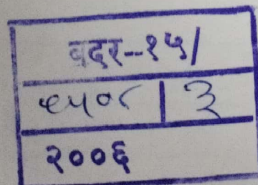 वदर-१५/
८५०८ | ३
२००६